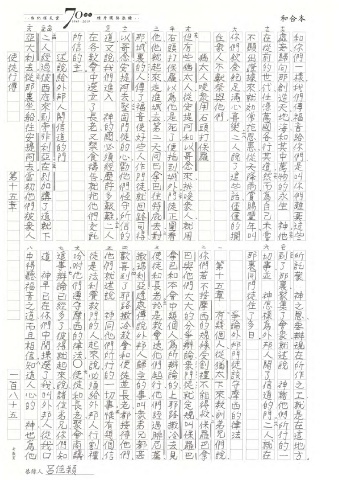 和合本
70
和你們一樣我們傳福音給你們是叫你們離棄這些
虛妄歸向那創造天地海和其中萬物的永生　神他
在從前的世代任憑萬國各行其道然而為自己未嘗
不顯出證據來就如常施恩惠從天降雨賞賜豐年叫
你們飲食飽足滿心喜樂二人說了這些話僅僅的攔
住眾人不獻祭與他們
猶太人唆眾用石頭打保羅
但有些猶太人從安提阿和以哥念來挑唆眾人就用
石頭打保羅以為他是死了便拖到城外門徒正圍著
他他就起來走進城去第二天同巴拿巴往特庇去對
那城裏的人傳了福音使好些人作門徒就回路司得
以哥念安提阿去堅固門徒的心勸他們恆守所信的
道又說我們進入　神的國必須經歷許多艱難二人
在各教會中選立了長老又禁食禱告就把他們交託
所信的主
述說給外邦人開信道的門
二人經過彼西底來到旁非利亞在別加講了道就下
亞大利去從那裏坐船往安提阿去當初他們被眾人
所託蒙　神之恩要辦現在所作之工就是在這地方
到了那裏聚集了會眾就述說　神藉他們所行的一
切事並　神怎樣為外邦人開了信道的門二人就在
那裏同門徒住了多日
爭論外邦門徒該守摩西的律法
第十五章　有幾個人從猶太下來教訓弟兄們說
你們若不按摩西的規條受割禮不能得救保羅巴拿
巴與他們大大的分爭辯論眾門徒就定規叫保羅巴
拿巴和本會中幾個人為所辯論的上耶路撒冷去見
使徒和長老於是教會送他們起行他們經過腓尼基
撒瑪利亞隨處傳說外邦人歸主的事叫眾弟兄都甚
歡喜到了耶路撒冷教會和使徒並長老都接待他們
他們就述說　神同他們所行的一切事惟有幾個信
徒是法利賽教門的人起來說必須給外邦人行割禮
吩咐他們遵守摩西的律法○使徒和長老聚會商議
這事辯論已經多了彼得就起來說諸位弟兄你們知
道　神早已在你們中間揀選了我叫外邦人從我口
中得聽福音之道而且相信知道人心的　神也為他
使徒行傳
第十五章
一百八十五